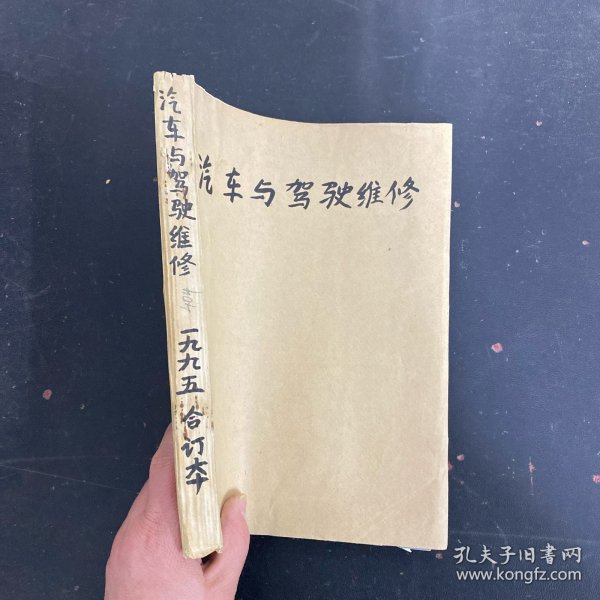 汽车与驾驶维修
一九九五 合订本
汽车与驾驶维修
孔夫子旧书网
www.kongfz.com